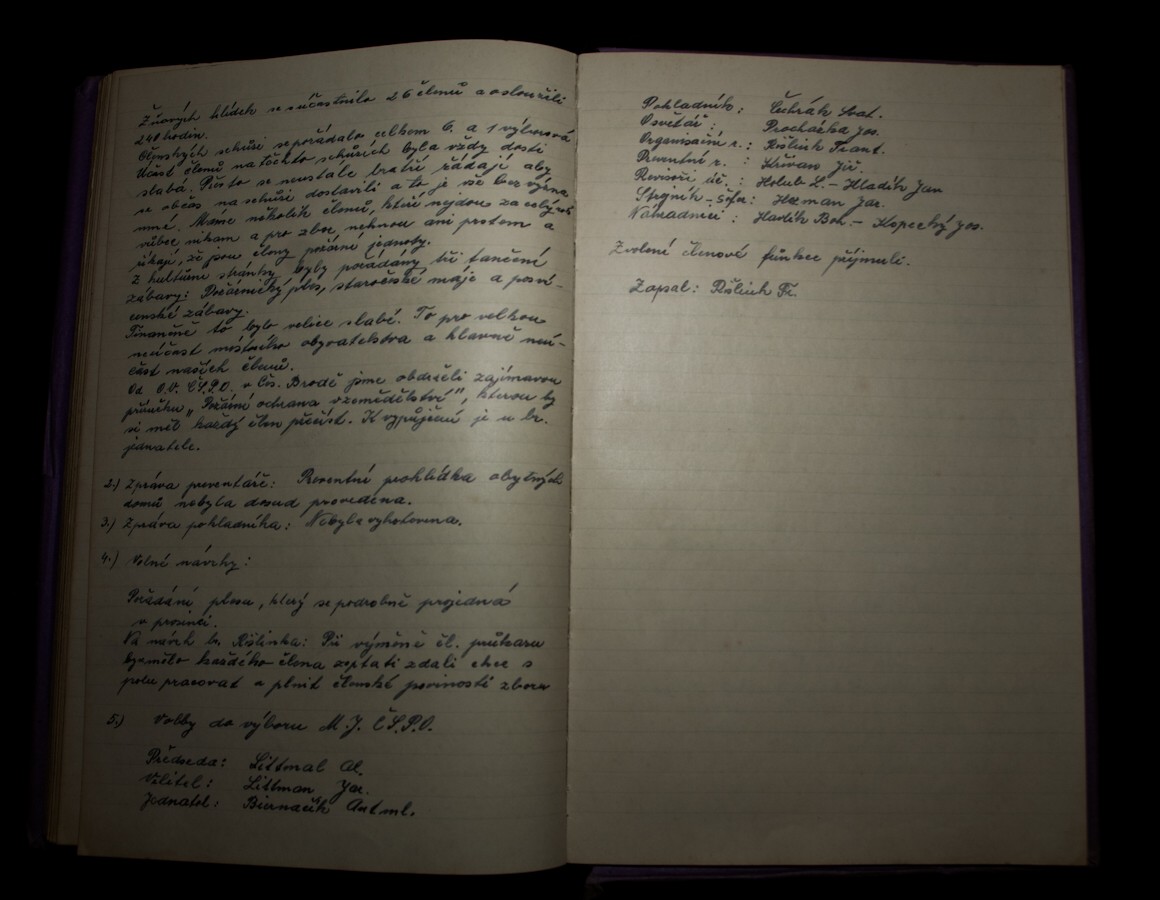 Žňových hlídek se súčastnilo 26 členů a odsloužili
240 hodin.
Členských schůzí se pořádalo celkom 6. a 1 výborová
Účast členů na těchto schůzích byla vždy dosti
slabá. Přesto se neustále bratři žádají aby
se občas na schůzi dostavili a to je vše bez význa
mné. Máme několik členů, kteří nejdou za celý rok
vůbec nikam a pro zbor nehnou ani prstem a
říkají, že jsou členy požární jednoty.
Z kulturní stránky, byly pořádány tři taneční
zábavy: Požárnický ples, staročeské máje a posví-
censké zábavy.
Finančně to bylo velice slabé. To pro velkou
neúčast místního obyvatelstva a hlavně neú-
část našich členů.
Od O.V. ČSPO. v Čes. Brodě jsme obdrželi zajímavou
příručku „Požární ochrana v zemědělství", kterou by
si měl každý člen přečíst. K vypůjčení je u br.
jednatele.
2.) Zpráva preventáře: Preventní prohlídka obytných
domů nebyla dosud provedena.
3.) Zpráva pokladníka: Nebyla vyhotovena.
4.) Volné návrhy:
Pořádání plesu, který se podrobně projedná
v prosinci.
Na návrh br. Ršlinka: Při výměně čl. průkazu
by se mělo každého člena zeptati zdali chce s
polu pracovat a plnit členské povinosti zboru
5.) Volby do výboru M.J. ČSPO.
Předseda: Littmal Al.
Velitel: Littman Jar.
Jednatel: Biernáčik Ant ml.
Pokladník: Čihák Svat.
Osvětář: Procházka Jos.
Organisační r.: Ršlink Frant.
Preventní r.: Křivan Jiř.
Revisoři úč.: Holub L. - Hladík Jan
Strojník - šéfer: Heřman Jar.
Náhradníci: Havlík Boh. - Kopecký Jos.
Zvolení členové funkce přijmuli.
Zapsal: Ršlink Fr.